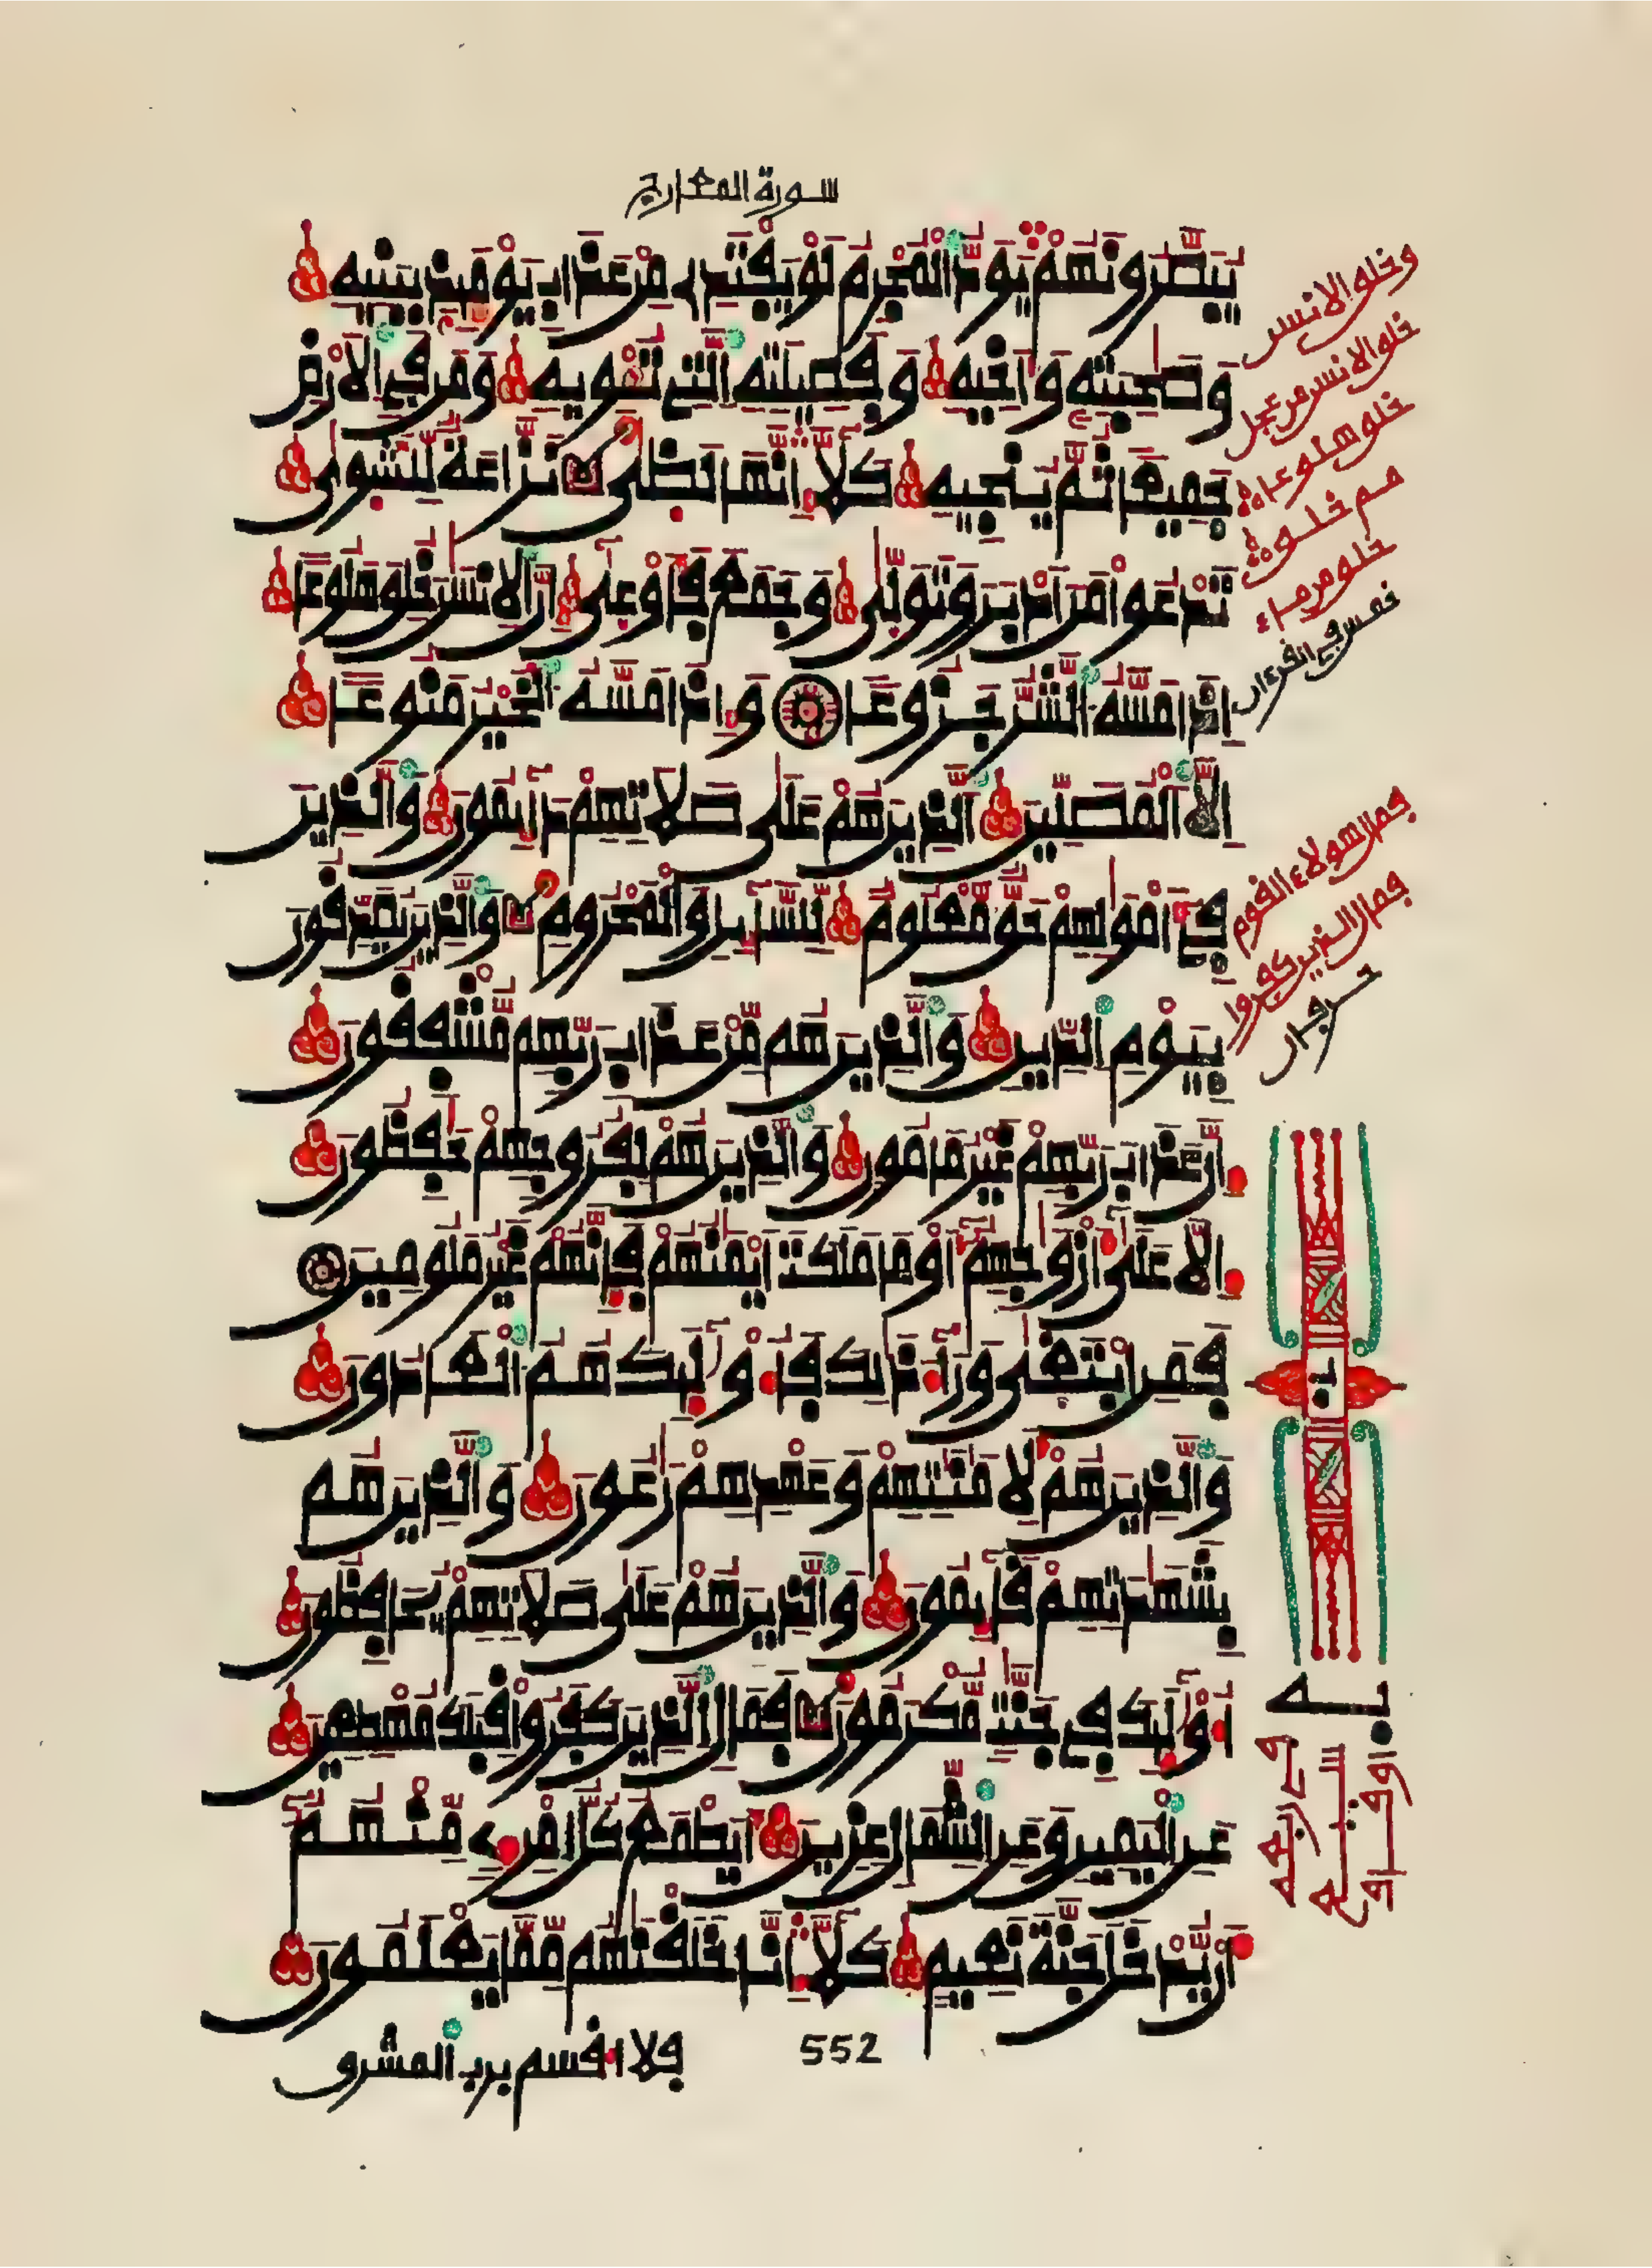 سورة المعارج
يبصرونهم يود المجرم لو يفتدے من عذاب يومئذ ببنيه
وصحبته وأخيه وفصيلته التے تـٔويه ومن في الارض
جميعا ثم ينجيه كلا إنها لظى نزاعة للشوى
تدعوا من ادبر وتولى وجمع فأوعى ان الانسن خلق هلوعا
إذا مسه الشر جزوعا وإذا مسه الخير منوعا
إلا المصلين الذين هم على صلاتهم دايمون والذين
في أموالهم حق معلوم للسايل والمحروم والذين يصدقون
بيوم الدين والذين هم من عذاب ربهم مشفقون
إن عذاب ربهم غير مامون والذين هم لفروجهم حفظون
إلا على أزواجهم أو ما ملكت أيمنهم فإنهم غير ملومين
فمن ابتغى ورآء ذلك فأولئك هم العادون
والذين هم لأمنتهم وعهدهم رعون والذين هم
بشهدتهم قايمون والذين هم على صلاتهم يحافظون
أولئك في جنت مكرمون فمال الذين كفروا قبلك مهطعين
عن اليمين وعن الشمال عزين أيطمع كل امرے منهم
أن يدخل جنة نعيم كلا إنا خلقنهم مما يعلمون
552
فلا أقسم برب المشرق
وخلق الانسن
خلق الانسن من عجل
خلق هلوعا
مم خلق
خلق من ماء
خمس في القرءان
فمال هولاء القوم
فمال الذين كفروا
حرفان